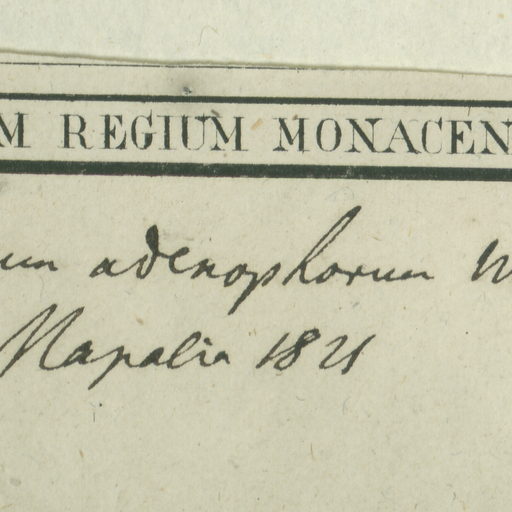 M REGIUM MONACEN
um adenophorum
Napalia 1821